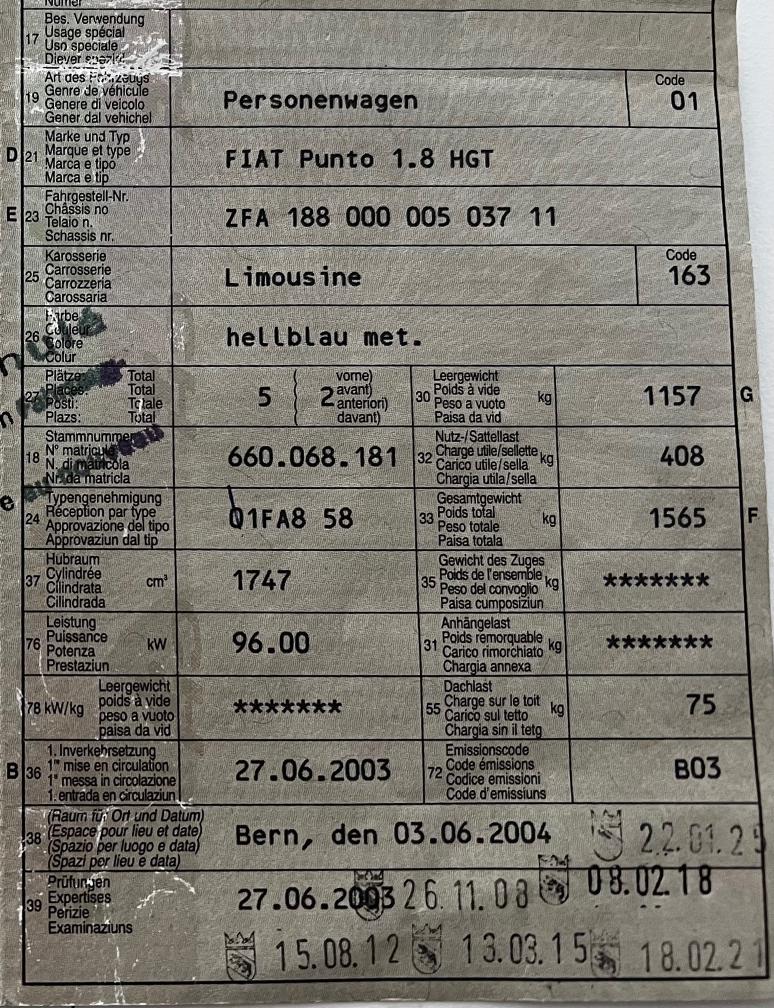 Numer
17 Bes. Verwendung
Usage spécial
Uso speciale
Diever spezial
19 Art des Fahrzeugs
Genre de véhicule
Genere di veicolo
Gener dal vehichel
Personenwagen
Code
01
D 21 Marke und Typ
Marque et type
Marca e tipo
Marca e tip
FIAT Punto 1.8 HGT
E 23 Fahrgestell-Nr.
Châssis no
Telaio n.
Schassis nr.
ZFA 188 000 005 037 11
25 Karosserie
Carrosserie
Carrozzeria
Carossaria
Limousine
Code
163
26 Farbe
Couleur
Colore
Colur
hellblau met.
27 Plätze: Total
Places: Total
Posti: Totale
Plazs: Total
5 2 vorne)
avant)
anteriori)
davant)
30 Leergewicht
Poids à vide kg
Peso a vuoto
Paisa da vid
1157 G
18 Stammnummer
N° matricule
N. di matricola
Nr. da matricla
660.068.181
32 Nutz-/Sattellast
Charge utile/sellette kg
Carico utile/sella
Chargia utila/sella
408
24 Typengenehmigung
Réception par type
Approvazione del tipo
Approvaziun dal tip
01FA8 58
33 Gesamtgewicht
Poids total kg
Peso totale
Paisa totala
1565 F
37 Hubraum
Cylindrée cm³
Cilindrata
Cilindrada
1747
35 Gewicht des Zuges
Poids de l'ensemble kg
Peso del convoglio
Paisa cumposiziun
*******
76 Leistung
Puissance kW
Potenza
Prestaziun
96.00
31 Anhängelast
Poids remorquable kg
Carico rimorchiato
Chargia annexa
*******
78 kW/kg Leergewicht
poids à vide
peso a vuoto
paisa da vid
*******
55 Dachlast
Charge sur le toit kg
Carico sul tetto
Chargia sin il tetg
75
B 36 1. Inverkehrsetzung
1re mise en circulation
1a messa in circolazione
1. entrada en circulaziun
27.06.2003
72 Emissionscode
Code émissions
Codice emissioni
Code d'emissiuns
B03
38 (Raum für Ort und Datum)
(Espace pour lieu et date)
(Spazio per luogo e data)
(Spazi per lieu e data)
Bern, den 03.06.2004 22.01.25
39 Prüfungen
Expertises
Perizie
Examinaziuns
27.06.2003 26.11.08 08.02.18
15.08.12 13.03.15 18.02.21